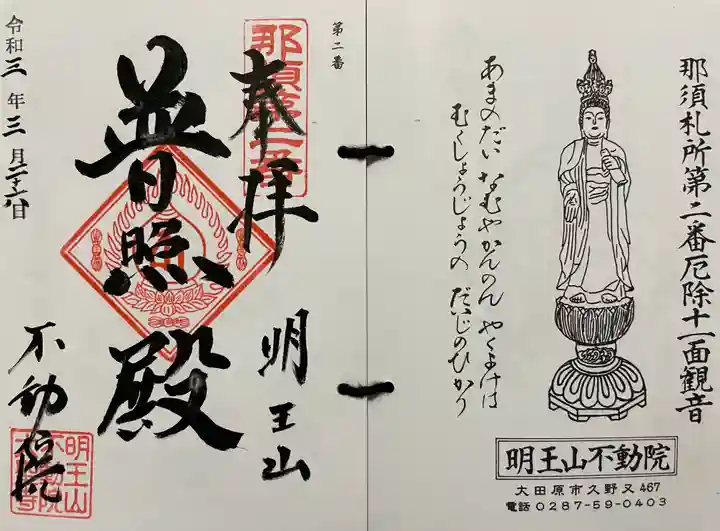 那須札所第二番厄除十一面観音
あまのだい なむやかんのん やくよけは
むくしょうじょうの だいじのひかり
明王山不動院
大田原市久野又467
電話 0287-59-0403
第二番
那須第二番
奉拝
明王山
普照殿
令和三年三月二十六日
不動院
明王山
不動院